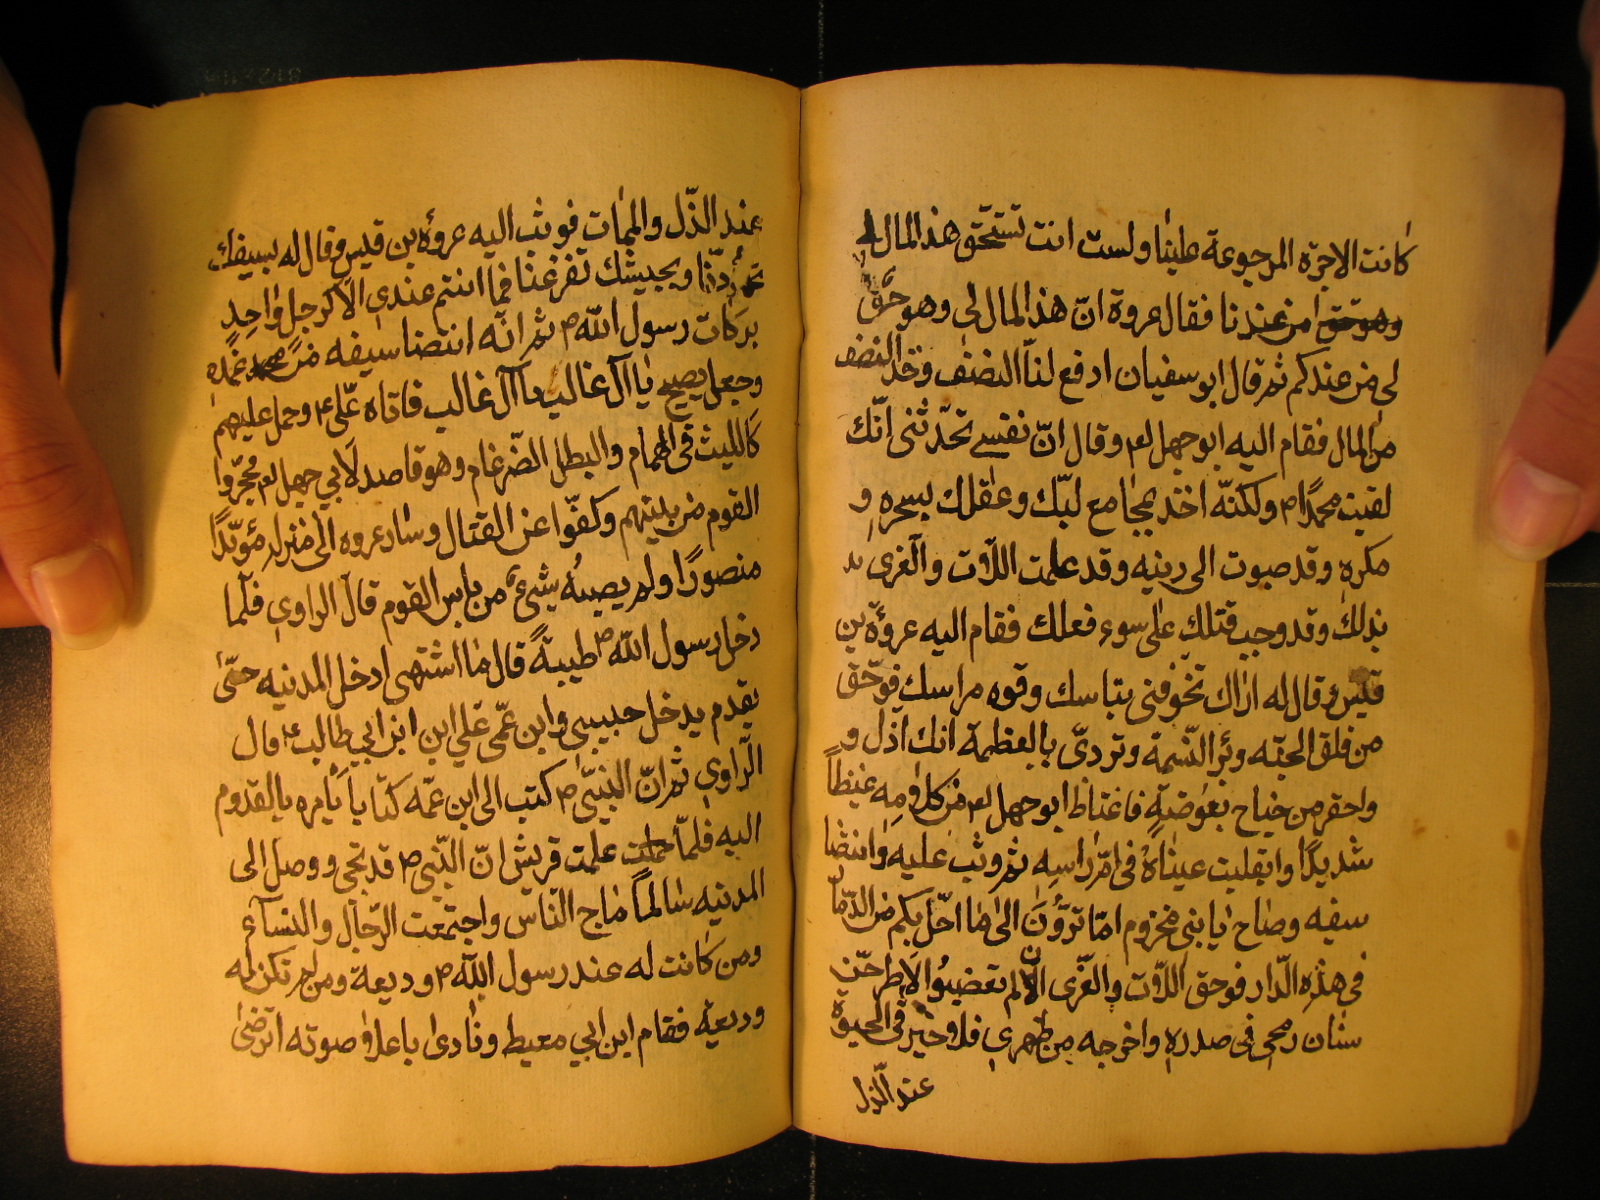 كانت الاجرة المرجوعة علينا ولست انت تستحق هذا المال
وهو حق من عندنا فقال عروة انّ هذا المال لى وهو حقّ
لى من عندكم ثم قال ابو سفيان ادفع لنا النصف وخذ النصف
من المال فقام اليه ابو جهل لعـ وقال انّ نفسى تحدّثنى انّك
لقيت محمدًا ص ولكنّه اخذ بمجامع لبّك وعقلك بسحره و
مكره وقد صبوت الى دينه وقد علمت اللآت والعزى
بذلك وقد وجب قتلك على سوء فعلك فقام اليه عروة بن
قيس وقال له اراك تخوفنى بباسك وقوه مراسك فوحّق
من فلق الحبّه وبرّ النّسمة وتردىّ بالعظمة انك اذل و
واحقر من جناح بعوضة فاغتاظ ابو جهل لعـ من كلامه غيظاً
شديدًا وانقلبت عيناهُ فى امّ راسه ثم وثب عليه وانتضا
سيفه وصاح يا بنى مخزوم امّا تروُن الى ما احّل بكم من الذمّا
فى هذه الدّار فوحق اللآت والعّزى ان لم تغضبوُا لاطرحّن
سنان رمحى فى صدره واخرجه من ظهرى فلا خير فى الحيوة
عند الّذل
عند الذّل والممات فوثب اليه عروة بن قيس وقال له بسيفك
تهدّدنا وبجيشك تفزعنا فما انتم عندى الّا كرجل واحدٍ
بركات رسول اللّه ص ثم انّه انتضا سيفه من غمده
وجعل يصيح يا آل غالب يا آل غالب فاتاه علّى ع وحمل عليهم
كالليث فى الهمام والبطل الضّرغام وهو قاصد لابي جهل لعـ فحجّزوا
القوم من بينهم وكفّوا عن القتال وسار عروه الى منزله مؤيّدًا
منصورًا ولم يصبهُ شئٌ من باس القوم قال الراوى فلّما
دخل رسول اللّه ص طيبةً قال ما اشتهى ادخل المدنيه حتّى
يقدم يدخل حبيبى وابن عمّى على ابن ابي طالب ع قال
الّراوى ثم انّ النبّى ص كتب الى ابن عمّه كتاباً يأمره بالقدوم
اليه فلمّا علمت قريش انّ النّبى ص قد نجى ووصل الى
المدنيه سالماً ماج الناس واجتمعت الرّجال والنسآء
ومن كانت له عند رسول اللّه ص وديعة ومن لم تكن له
وديعة فقام ابن ابي معيط ونادى باعلا صوته اترضى